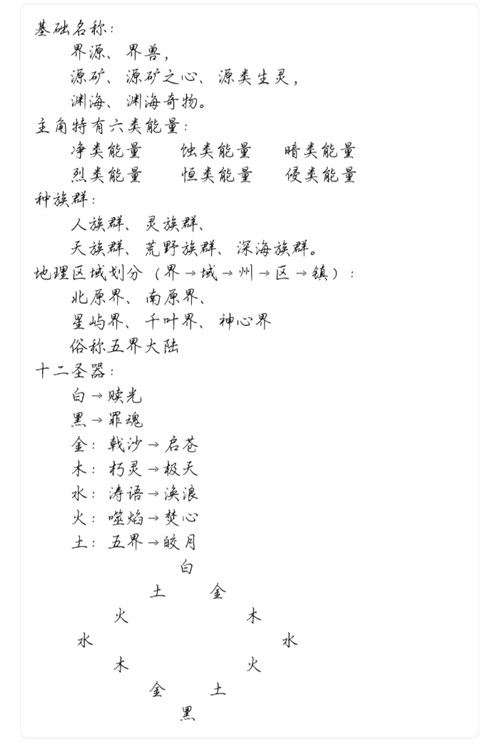 基础名称：
界源、界兽，
源矿、源矿之心、源类生灵，
渊海、渊海奇物。
主角特有六类能量：
净类能量 蚀类能量 暗类能量
烈类能量 恒类能量 侵类能量
种族群：
人族群、灵族群、
天族群、荒野族群、深海族群。
地理区域划分（界→域→州→区→镇）：
北原界、南原界、
星屿界、千叶界、神心界
俗称五界大陆
十二圣器：
白→赎光
黑→罪魂
金：戟沙→启苍
木：朽灵→极天
水：涛语→涣浪
火：噬焰→焚心
土：五界→皎月
白
土 金
火 木
水 水
木 火
金 土
黑